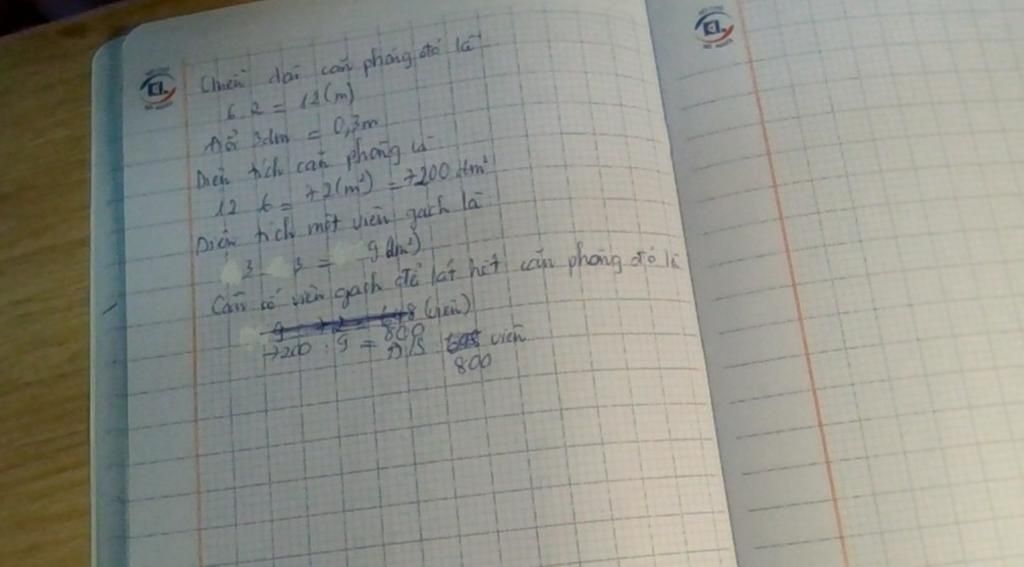 Chiều dài căn phòng đó là
6.2 = 12(m)
Đổi 3dm = 0,3m
Diện tích căn phòng là
12 6 = 72(m²) = 7200 dm²
Diện tích một viên gạch là
3 3 = 9 dm²)
Cần số viên gạch để lát hết căn phòng đó là
(viên)
7200 : 9 = 800
Đ/S viên
800